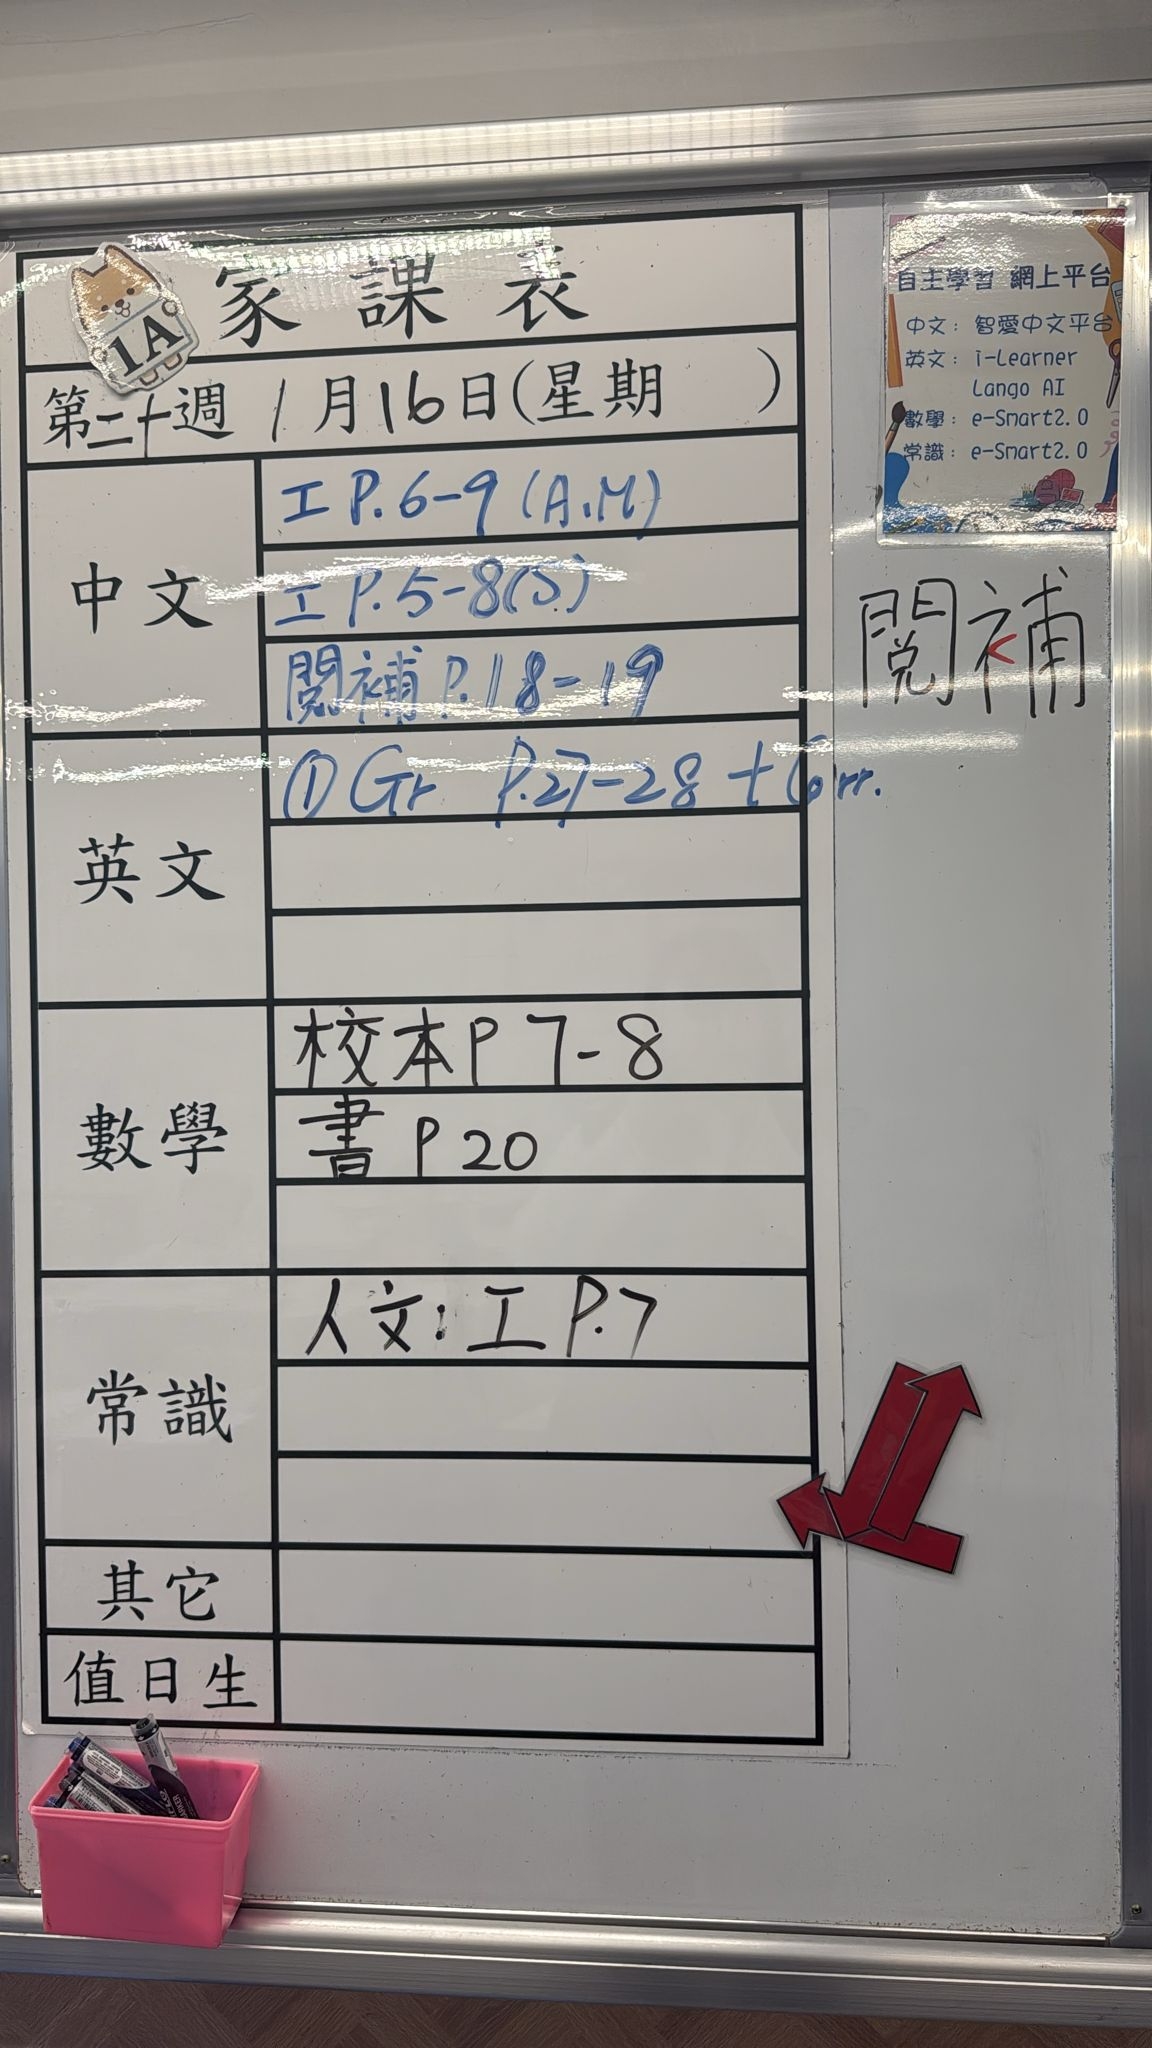 1A
家課表
第二十週 1月16日(星期 )
中文
工 P.6-9 (A.M)
工 P.5-8(S)
閱補 P.18-19
英文
① Gr P.27-28 + Corr.
數學
校本 P 7-8
書 P 20
常識
人文：工 P.7
其它
值日生
自主學習 網上平台
中文：智愛中文平台
英文：i-Learner
Lango AI
數學：e-Smart2.0
常識：e-Smart2.0
閱補